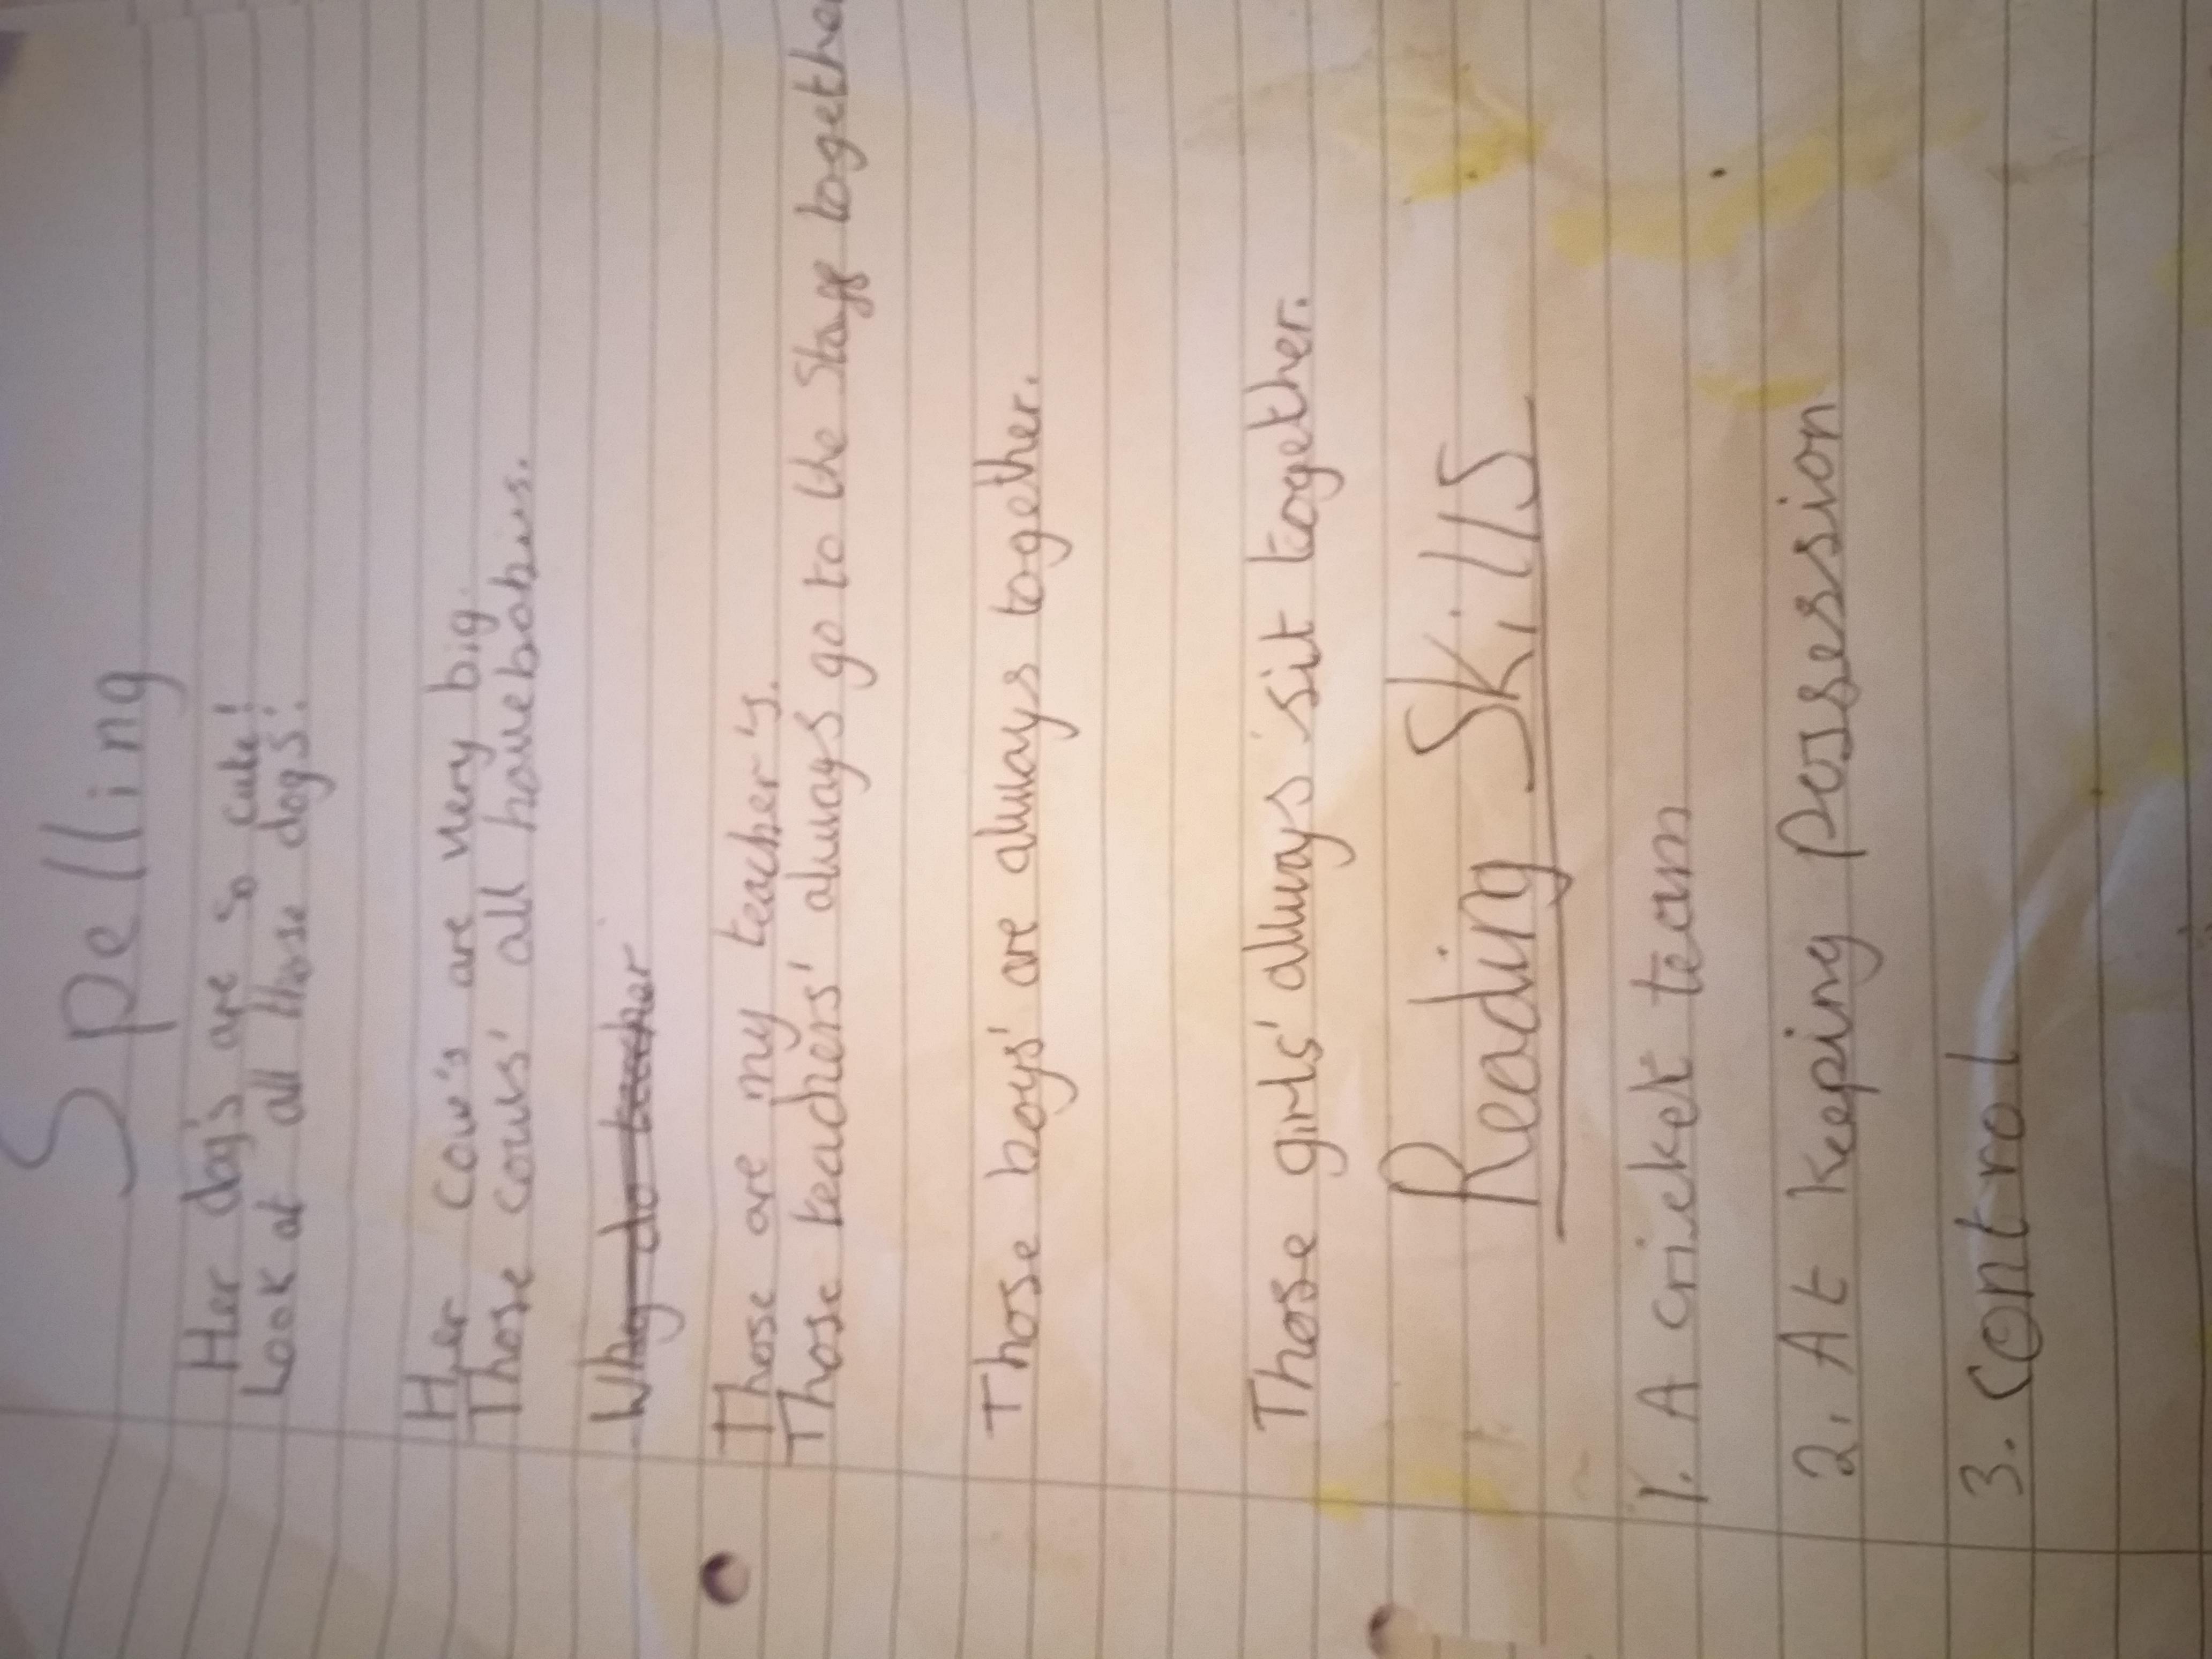 Spelling
Her dog's are so cute!
Look at all those dogs'.
Her cow's are very big.
Those cows' all have babies.
Why do teacher
Those are my teacher's.
Those teachers' always go to the together
Those boys' are always together.
Those girls' always sit together.
Reading Skills
1. A cricket team
2. At keeping possession
3. Control